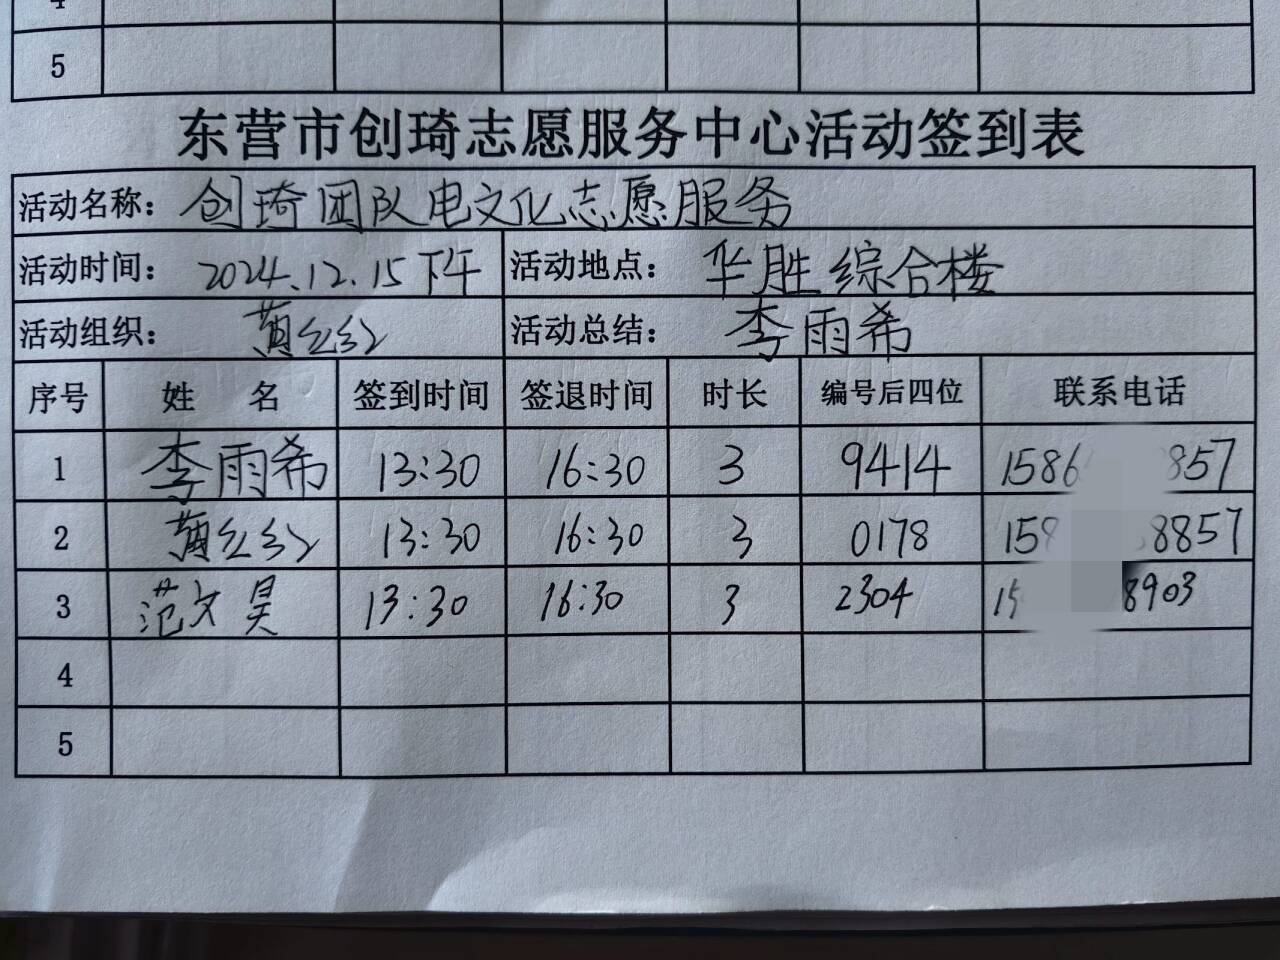 4
5
东营市创琦志愿服务中心活动签到表
活动名称：创琦团队电文化志愿服务
活动时间：2024.12.15下午 活动地点：华胜综合楼
活动组织：黄红红 活动总结：李雨希
序号 姓 名 签到时间 签退时间 时长 编号后四位 联系电话
1 李雨希 13:30 16:30 3 9414 1586 857
2 黄红红 13:30 16:30 3 0178 158 8857
3 范文昊 13:30 16:30 3 2304 15 8903
4
5